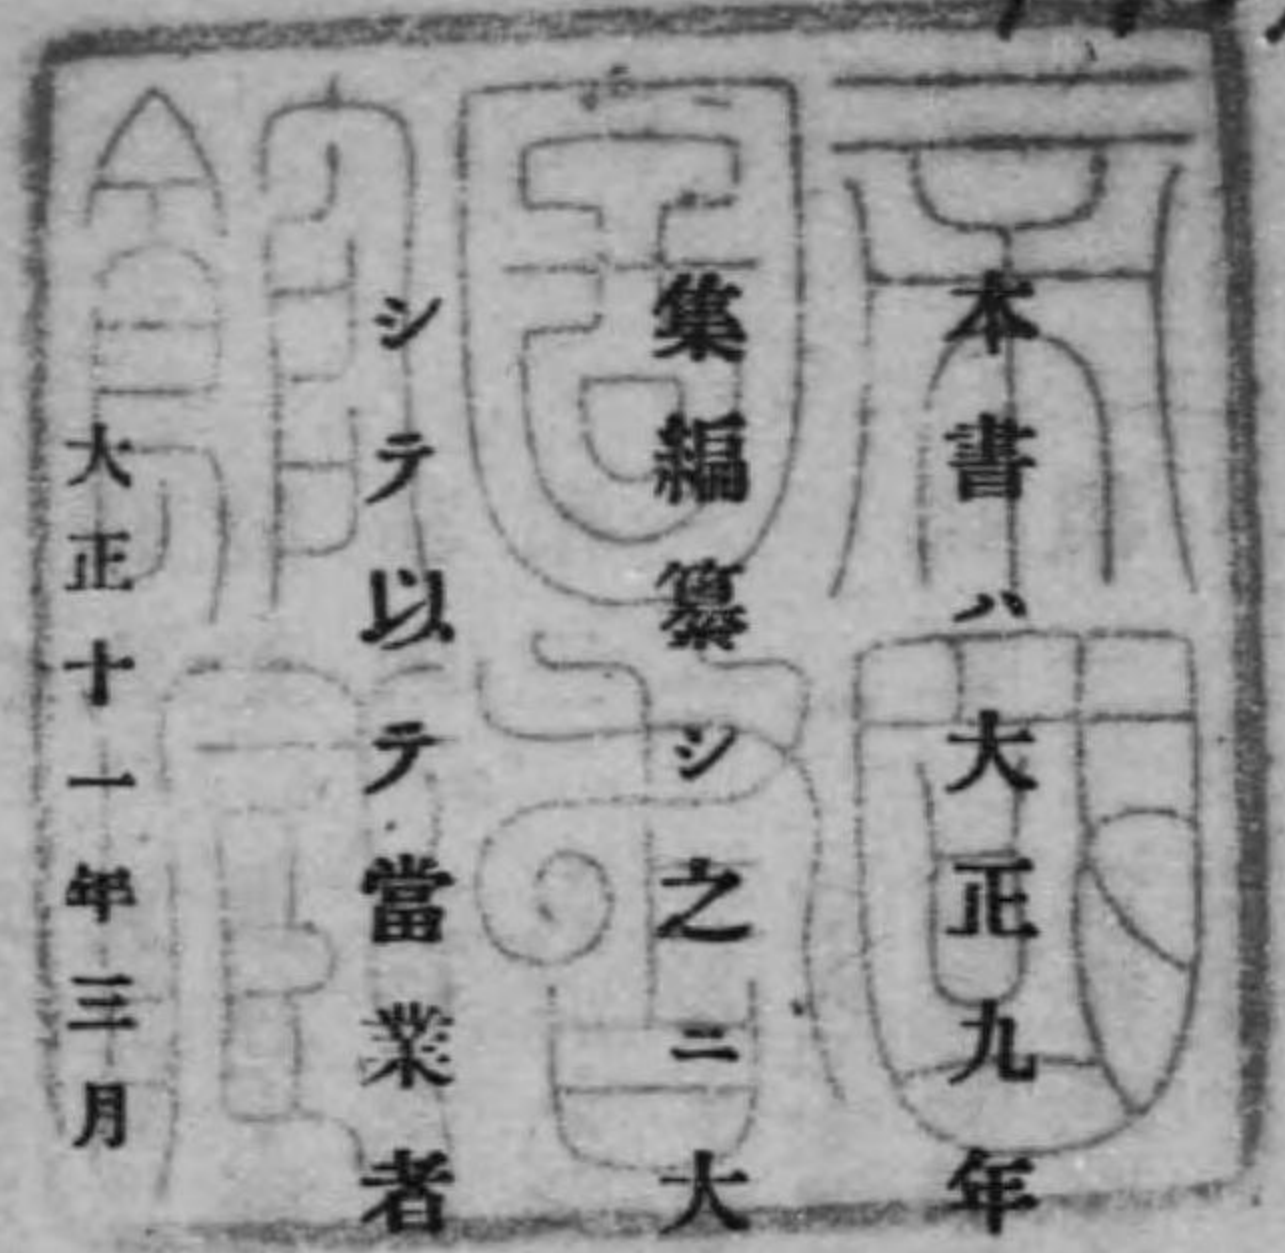 本書ハ大正九年
集編纂シ之ニ大
シテ以テ當業者
大正十一年三月
帝國
圖書
館藏